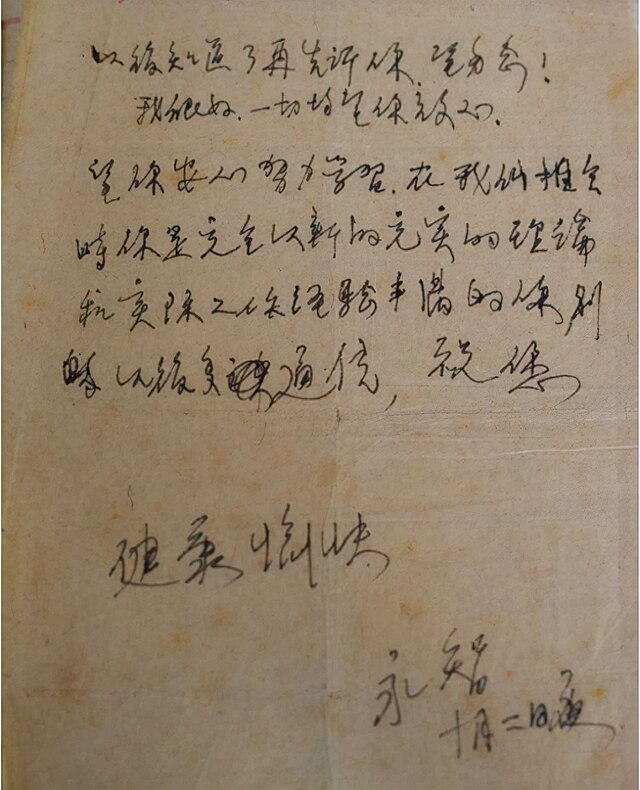 以後知道了再告訴你,望勿念!
我很好.一切均望你放心.
望你安心努力學習.在我們推会
時你是完全以新的充实的理論
和实际工作經驗丰滿的你,别
以後多通信,祝你
健康愉快
永智
十月二日